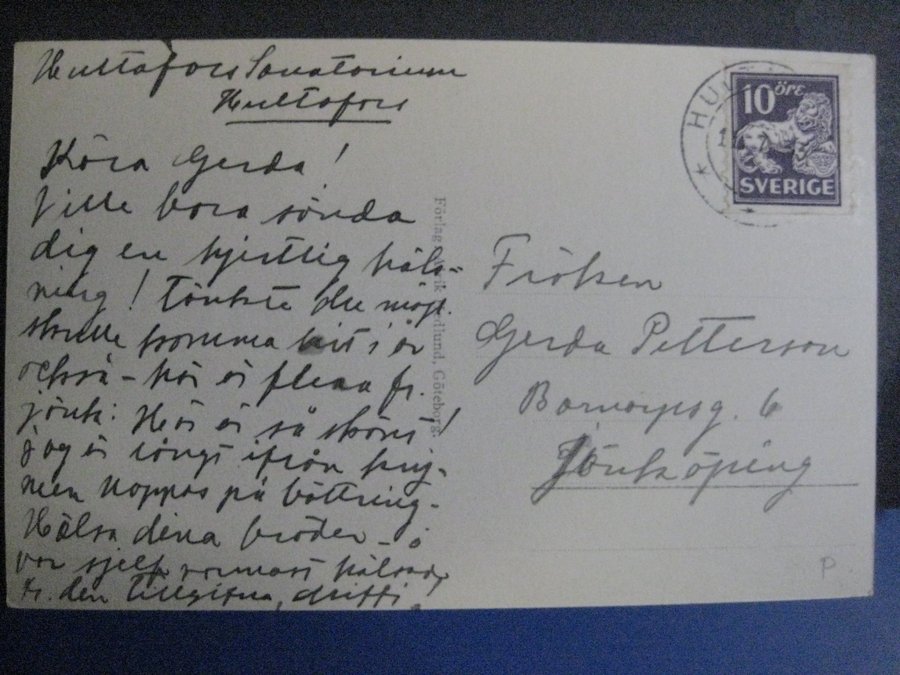 Hultafors Sanatorium
Hultafors
Kära Gerda!
Ville bara sända
dig en hjertlig häls-
ning! Tänkte du möjl.
skulle komma hit i år
också - här är flera fr.
jönk: Här är så skönt!
jag är långt ifrån kry-
men hoppas på bättring-
Hälsa dina bröder - o
var sjelf varmast hälsad
fr. den tillgifna,
Förlag: Hedlund, Göteborg.
HUL
10 öre
SVERIGE
Fröken
Gerda Petterson
Barnarpsg. 6
Jönköping
P